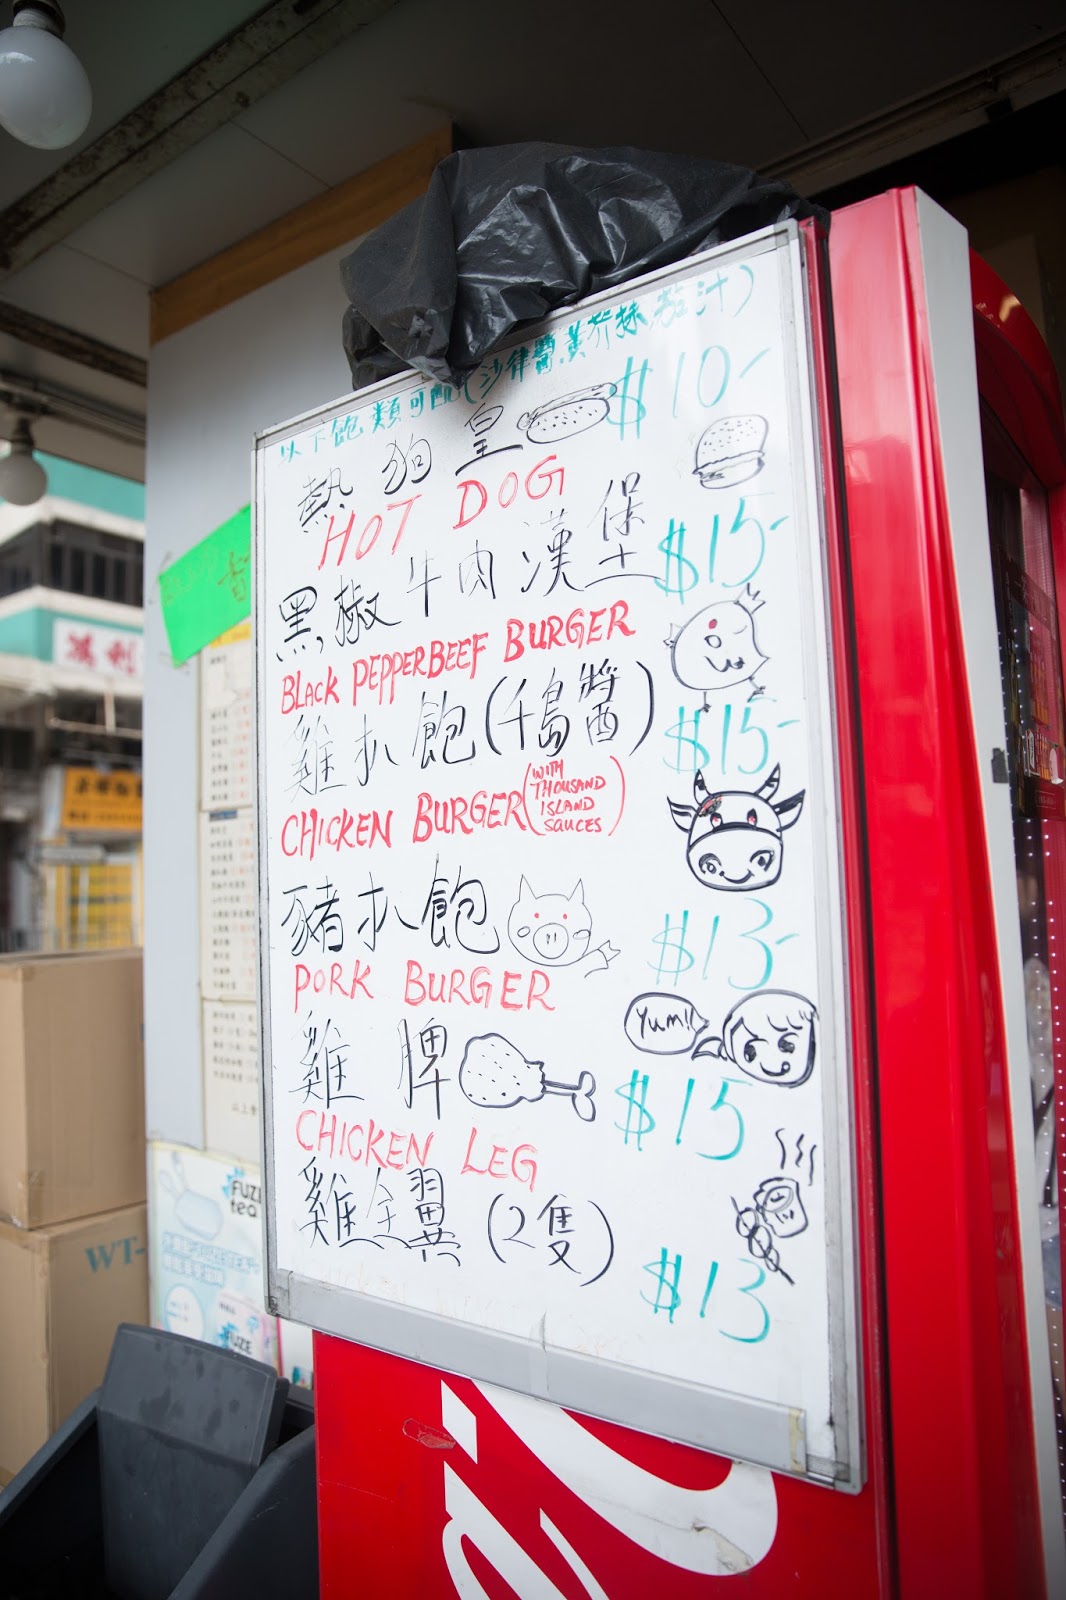 以下飽類可配(沙律醬.黃芥抹.茄汁)
熱狗皇 $10-
HOT DOG
黑椒牛肉漢堡 $15-
BLACK PEPPER BEEF BURGER
雞扒飽(千島醬) $15-
CHICKEN BURGER (WITH THOUSAND ISLAND SAUCES)
豬扒飽 $13-
PORK BURGER
Yum!!
雞髀 $15
CHICKEN LEG
雞全翼(2隻) $13
FUZE
tea
WT-
FUZE